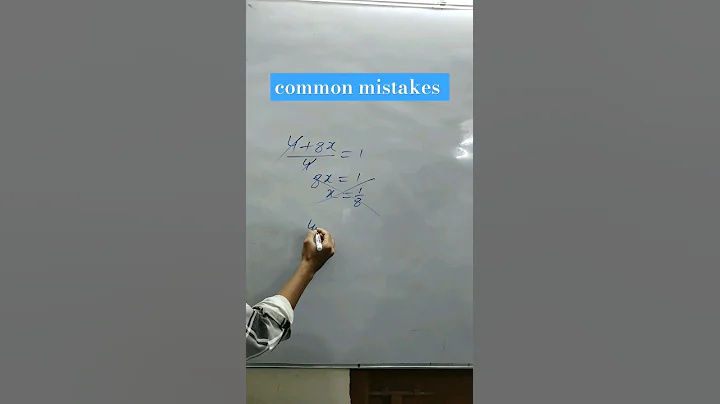 common mistakes
4+8x
4
= 1
8x = 1
x = 1/8
4